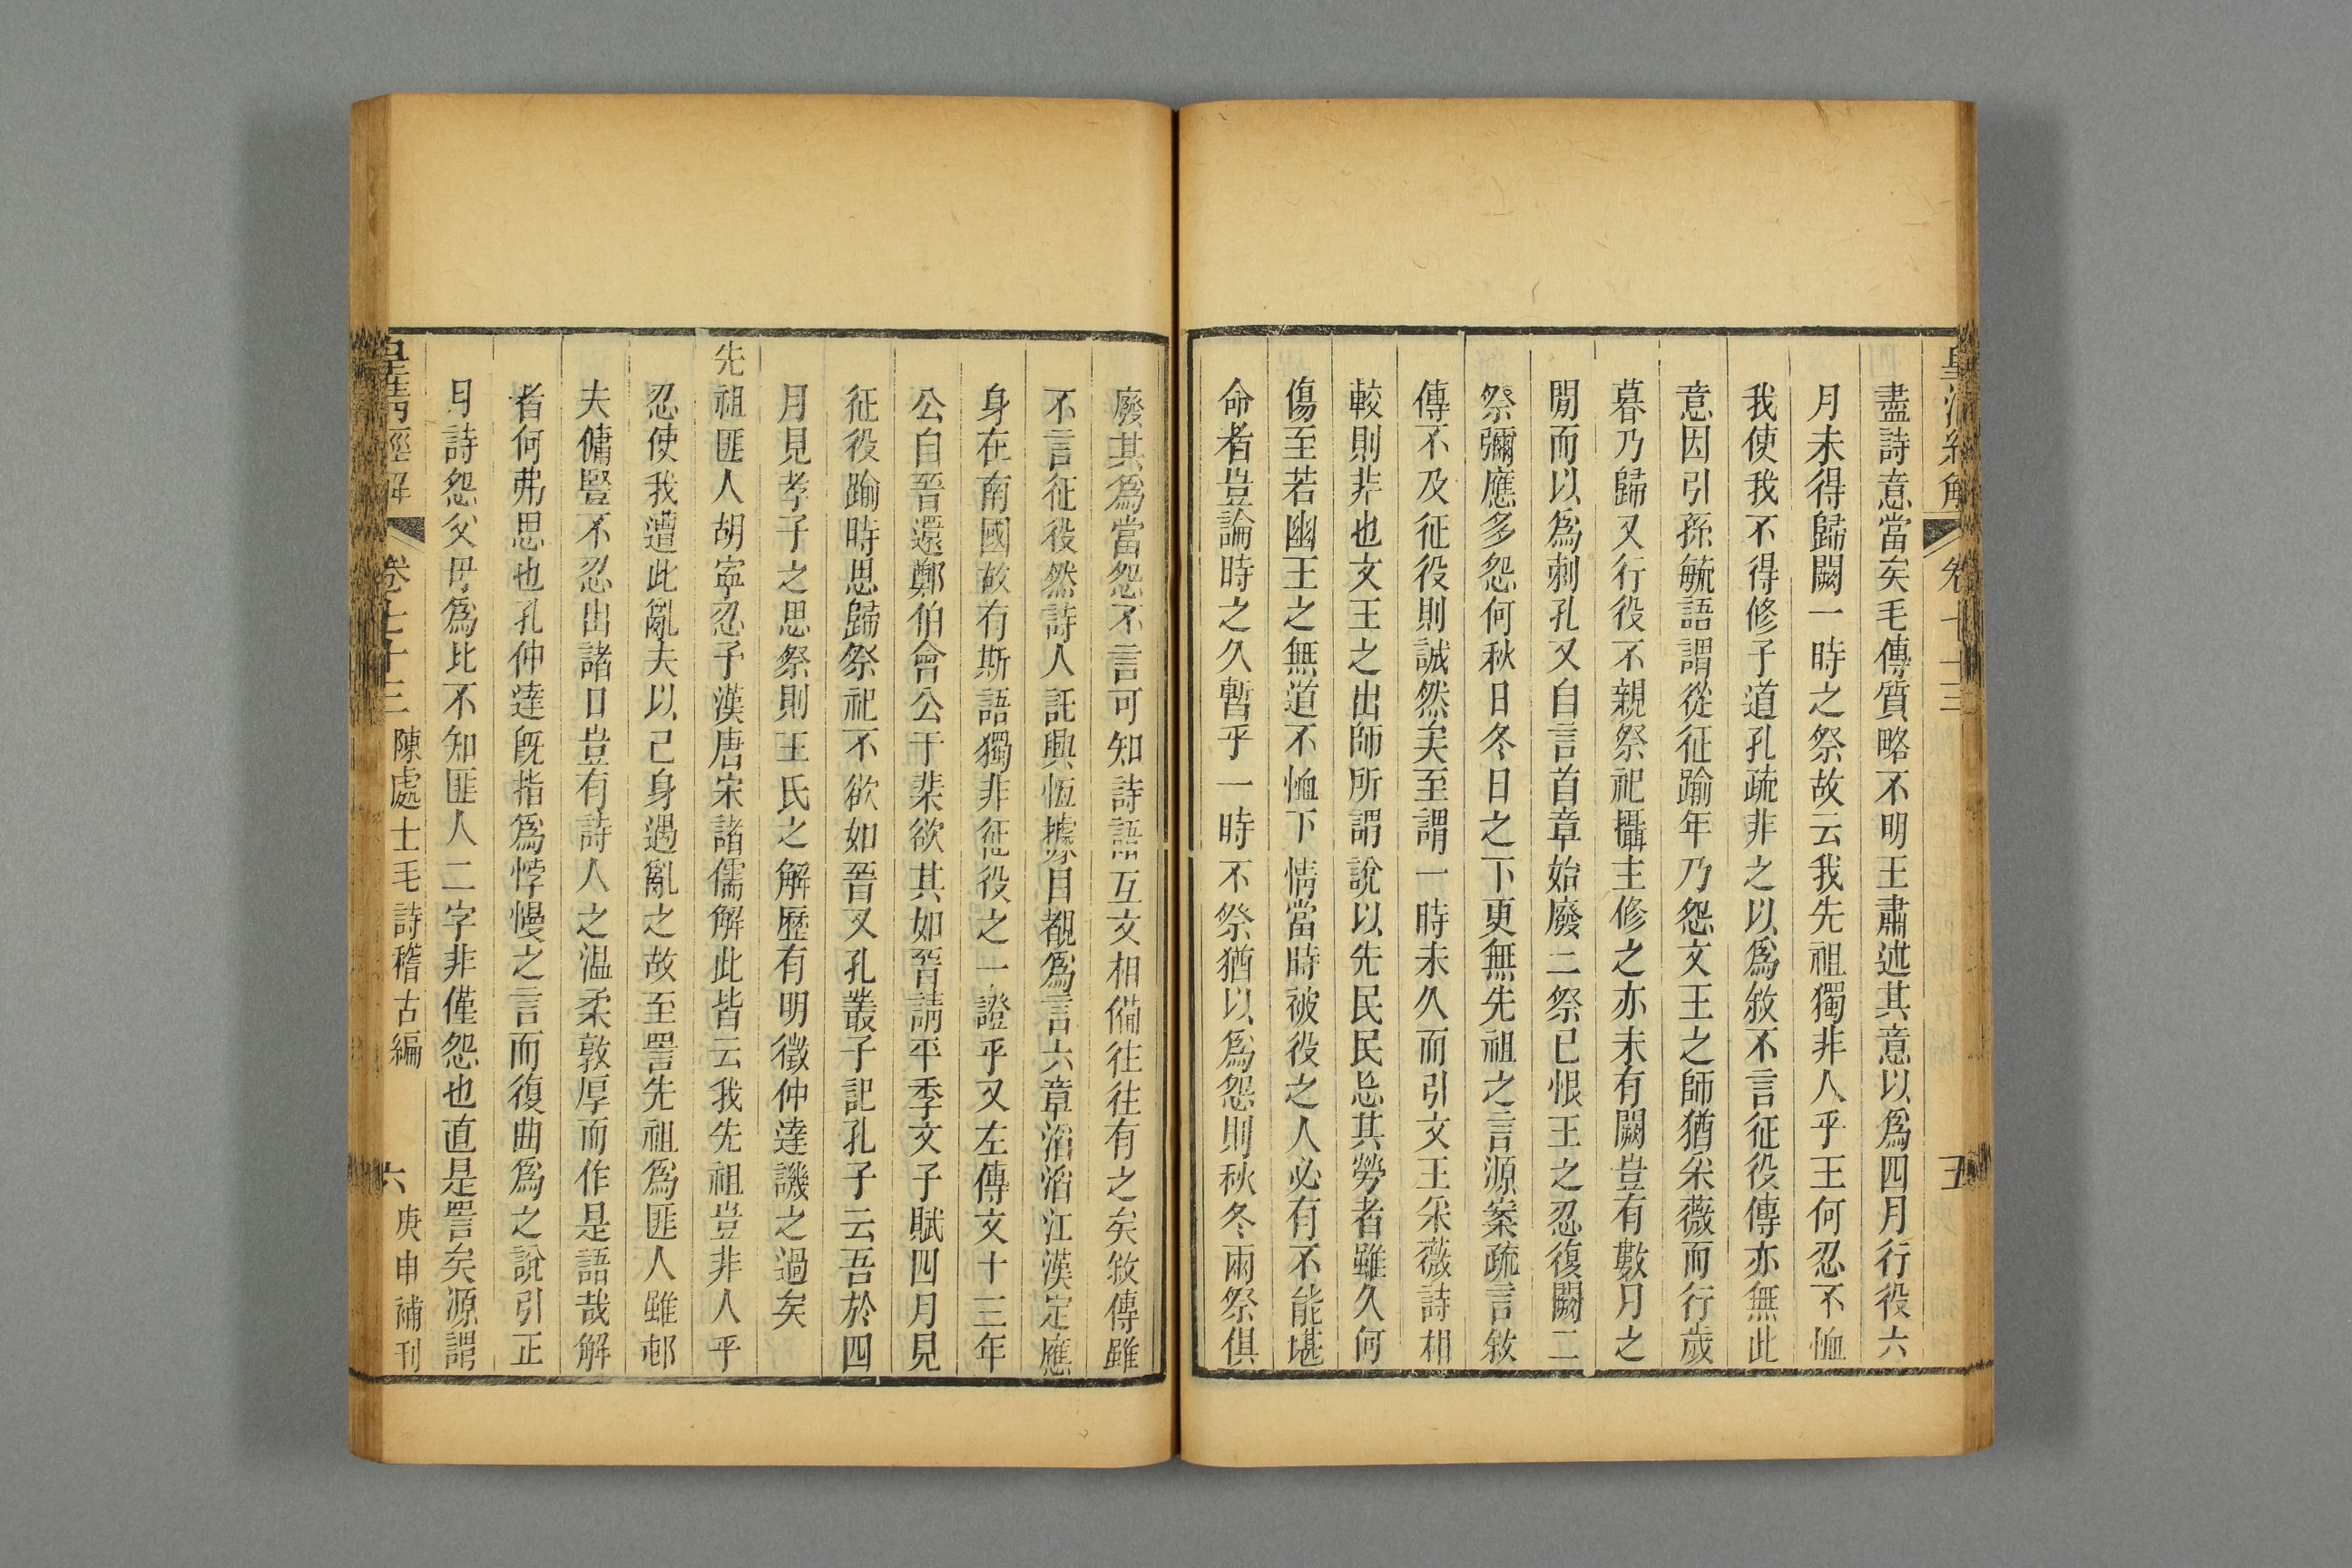 盡詩意當矣毛傳質略不明王肅述其意以爲四月行役六
月未得歸闕一時之祭故云我先祖獨非人乎王何忍不恤
我使我不得修子道孔疏非之以爲敘不言征役傳亦無此
意因引孫毓語謂從征踰年乃怨文王之師猶采薇而行歲
暮乃歸又行役不親祭祀攝主修之亦未有闕豈有數月之
閒而以爲刺孔又自言首章始廢二祭已恨王之忍復闕二
祭彌應多怨何秋日冬日之下更無先祖之言源案疏言敘
傳不及征役則誠然矣至謂一時未久而引文王采薇詩相
較則非也文王之出師所謂說以先民民忘其勞者雖久何
傷至若幽王之無道不恤下情當時被役之人必有不能堪
命者豈論時之久暫乎一時不祭猶以爲怨則秋冬兩祭俱
廢其爲當怨不言可知詩語互文相備往往有之矣敘傳雖
不言征役然詩人託興恆據目覩爲言六章滔滔江漢定應
身在南國故有斯語獨非征役之一證乎又左傳文十三年
公自晉還鄭伯會公于棐欲其如晉請平季文子賦四月見
征役踰時思歸祭祀不欲如晉又孔叢子記孔子云吾於四
月見孝子之思祭則王氏之解歷有明徵仲達譏之過矣
先祖匪人胡寧忍予漢唐宋諸儒解此皆云我先祖豈非人乎
忍使我遭此亂夫以己身遇亂之故至詈先祖爲匪人雖邨
夫傭豎不忍出諸口豈有詩人之溫柔敦厚而作是語哉解
者何弗思也孔仲達旣指爲悖慢之言而復曲爲之說引正
月詩怨父母爲比不知匪人二字非僅怨也直是詈矣源謂
皇清經解 卷七十三 陳處士毛詩稽古編 六 庚申補刊